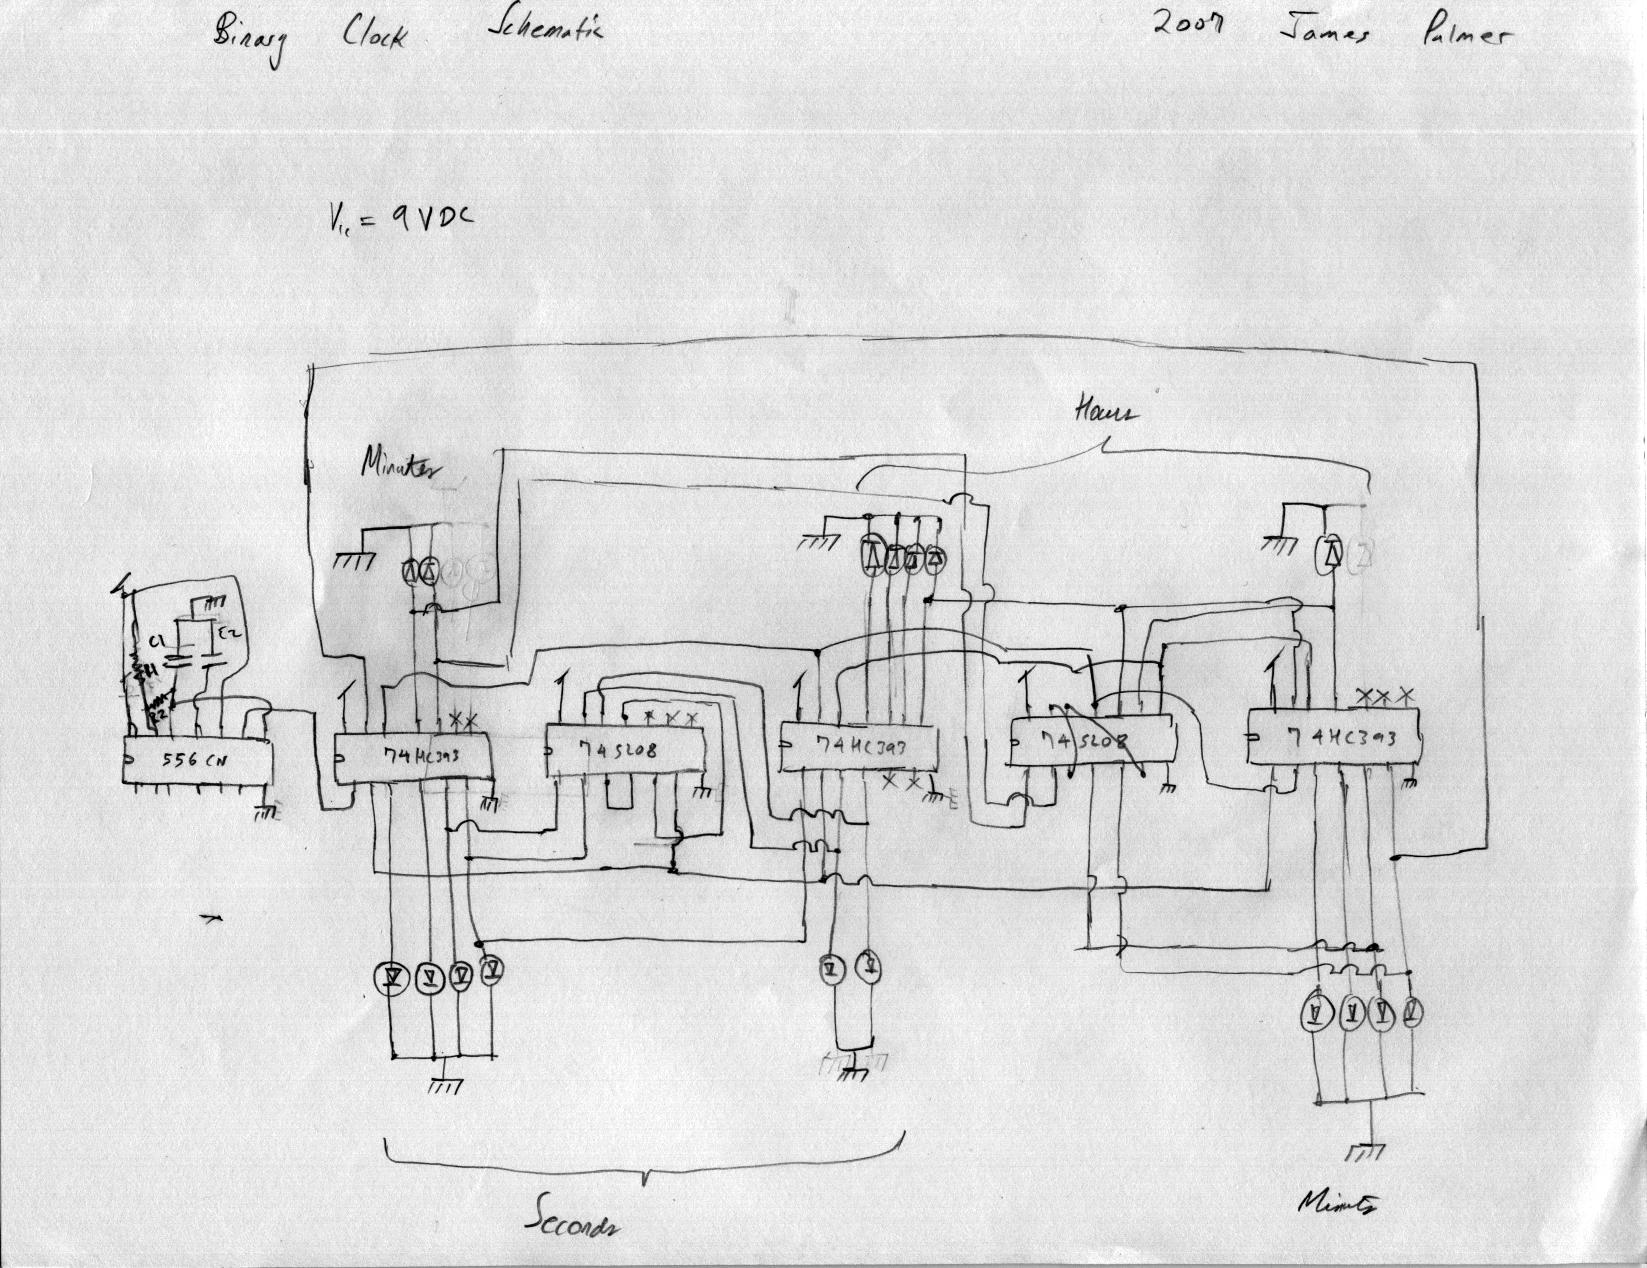 Binary Clock Schematic 2007 James Palmer
Vcc = 9VDC
Hours
Minutes
C1 C2
R1
R2
556CN
74HC393
74S208
74HC393
74S208
74HC393
Seconds
Minuts